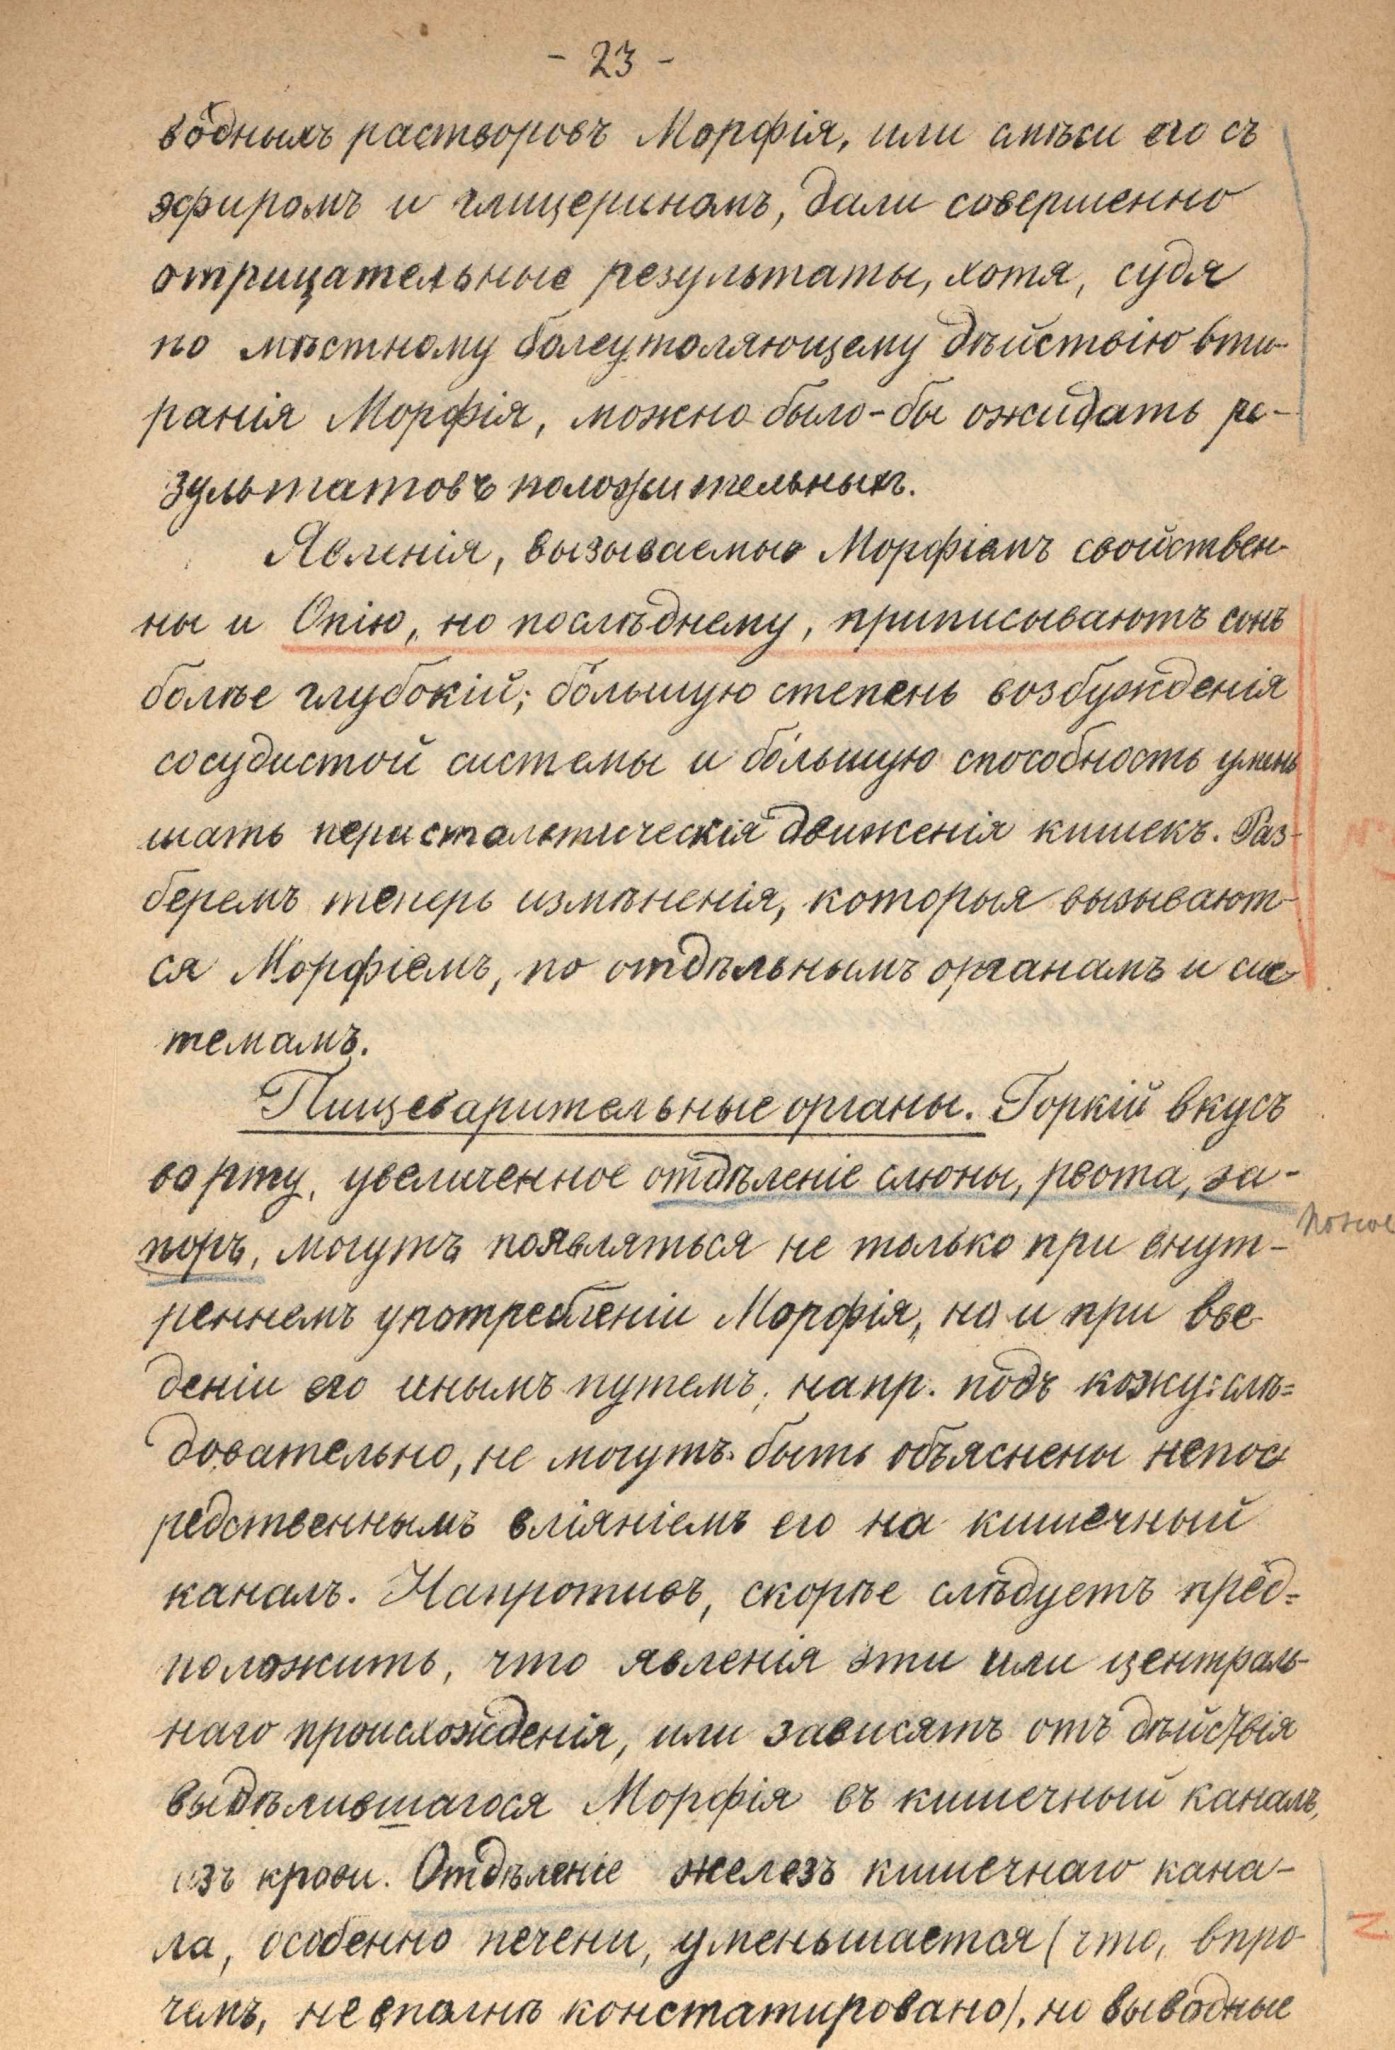 - 23 -
водныхъ растворовъ Морфія, или смѣси его съ
эфиромъ и глицериномъ, дали совершенно
отрицательные результаты, хотя, судя
по мѣстному болеутоляющему дѣйствію вти-
ранія Морфія, можно было-бы ожидать ре-
зультатовъ положительныхъ.
Явленія, вызываемыя Морфіемъ свойствен-
ны и Опію, но послѣднему, приписываютъ сонъ
болѣе глубокій; бо́льшую степень возбужденія
сосудистой системы и бо́льшую способность умень
шать перистальтическія движенія кишекъ. Раз-
беремъ теперь измѣненія, которыя вызывают-
ся Морфіемъ, по отдѣльнымъ органамъ и сис-
темамъ.
Пищеварительные органы. Горкій вкусъ
во рту, увеличенное отдѣленіе слюны, рвота, за-
поръ, могутъ появляться не только при внут-
реннемъ употребленіи Морфія, но и при вве-
деніи его инымъ путемъ, напр. подъ кожу: слѣ=
довательно, не могутъ быть объяснены непос
редственнымъ вліяніемъ его на кишечный
каналъ. Напротивъ, скорѣе слѣдуетъ пред=
положить, что явленія эти или централь-
наго происхожденія, или зависятъ отъ дѣйствія
выдѣлившагося Морфія въ кишечный каналъ,
изъ крови. Отдѣленіе железъ кишечнаго кана-
ла, особенно печени, уменьшается (что, впро-
чемъ, не вполнѣ констатировано), но выводные